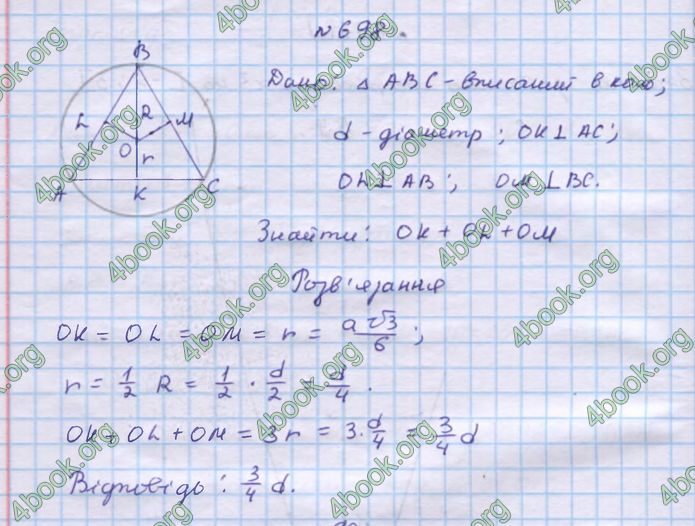 № 698.
B
Дано: △ ABC - вписаний в коло;
L R M
d - діаметр; OK ⊥ AC;
O
r
OL ⊥ AB; OM ⊥ BC.
A K C
Знайти: OK + OL + OM
Розв'язання
OK = OL = OM = r = a√3/6;
r = 1/2 R = 1/2 · d/2 = d/4.
OK + OL + OM = 3r = 3 · d/4 = 3/4 d
Відповідь: 3/4 d.
4book.org